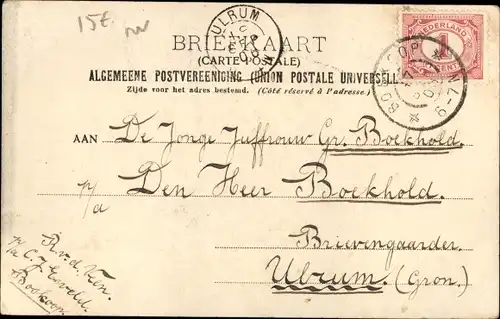 15€
ULRUM
BRIEFKAART
(CARTE POSTALE)
ALGEMEENE POSTVEREENIGING (UNION POSTALE UNIVERSELLE)
Zijde voor het adres bestemd. (Côté réservé à l'adresse.)
NEDERLAND
1
CENT
BOSKOOP
6-7N
AAN De Jonge Juffrouw Gr. Boekhold
p/a Den Heer Boekhold.
Brievengaarder
Ulrum. (Gron.)
R. v. d. Ven.
p/a C. J.
Boskoop.